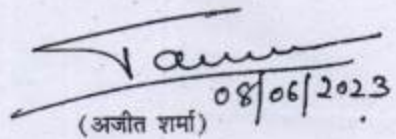 08/06/2023
(अजीत शर्मा)